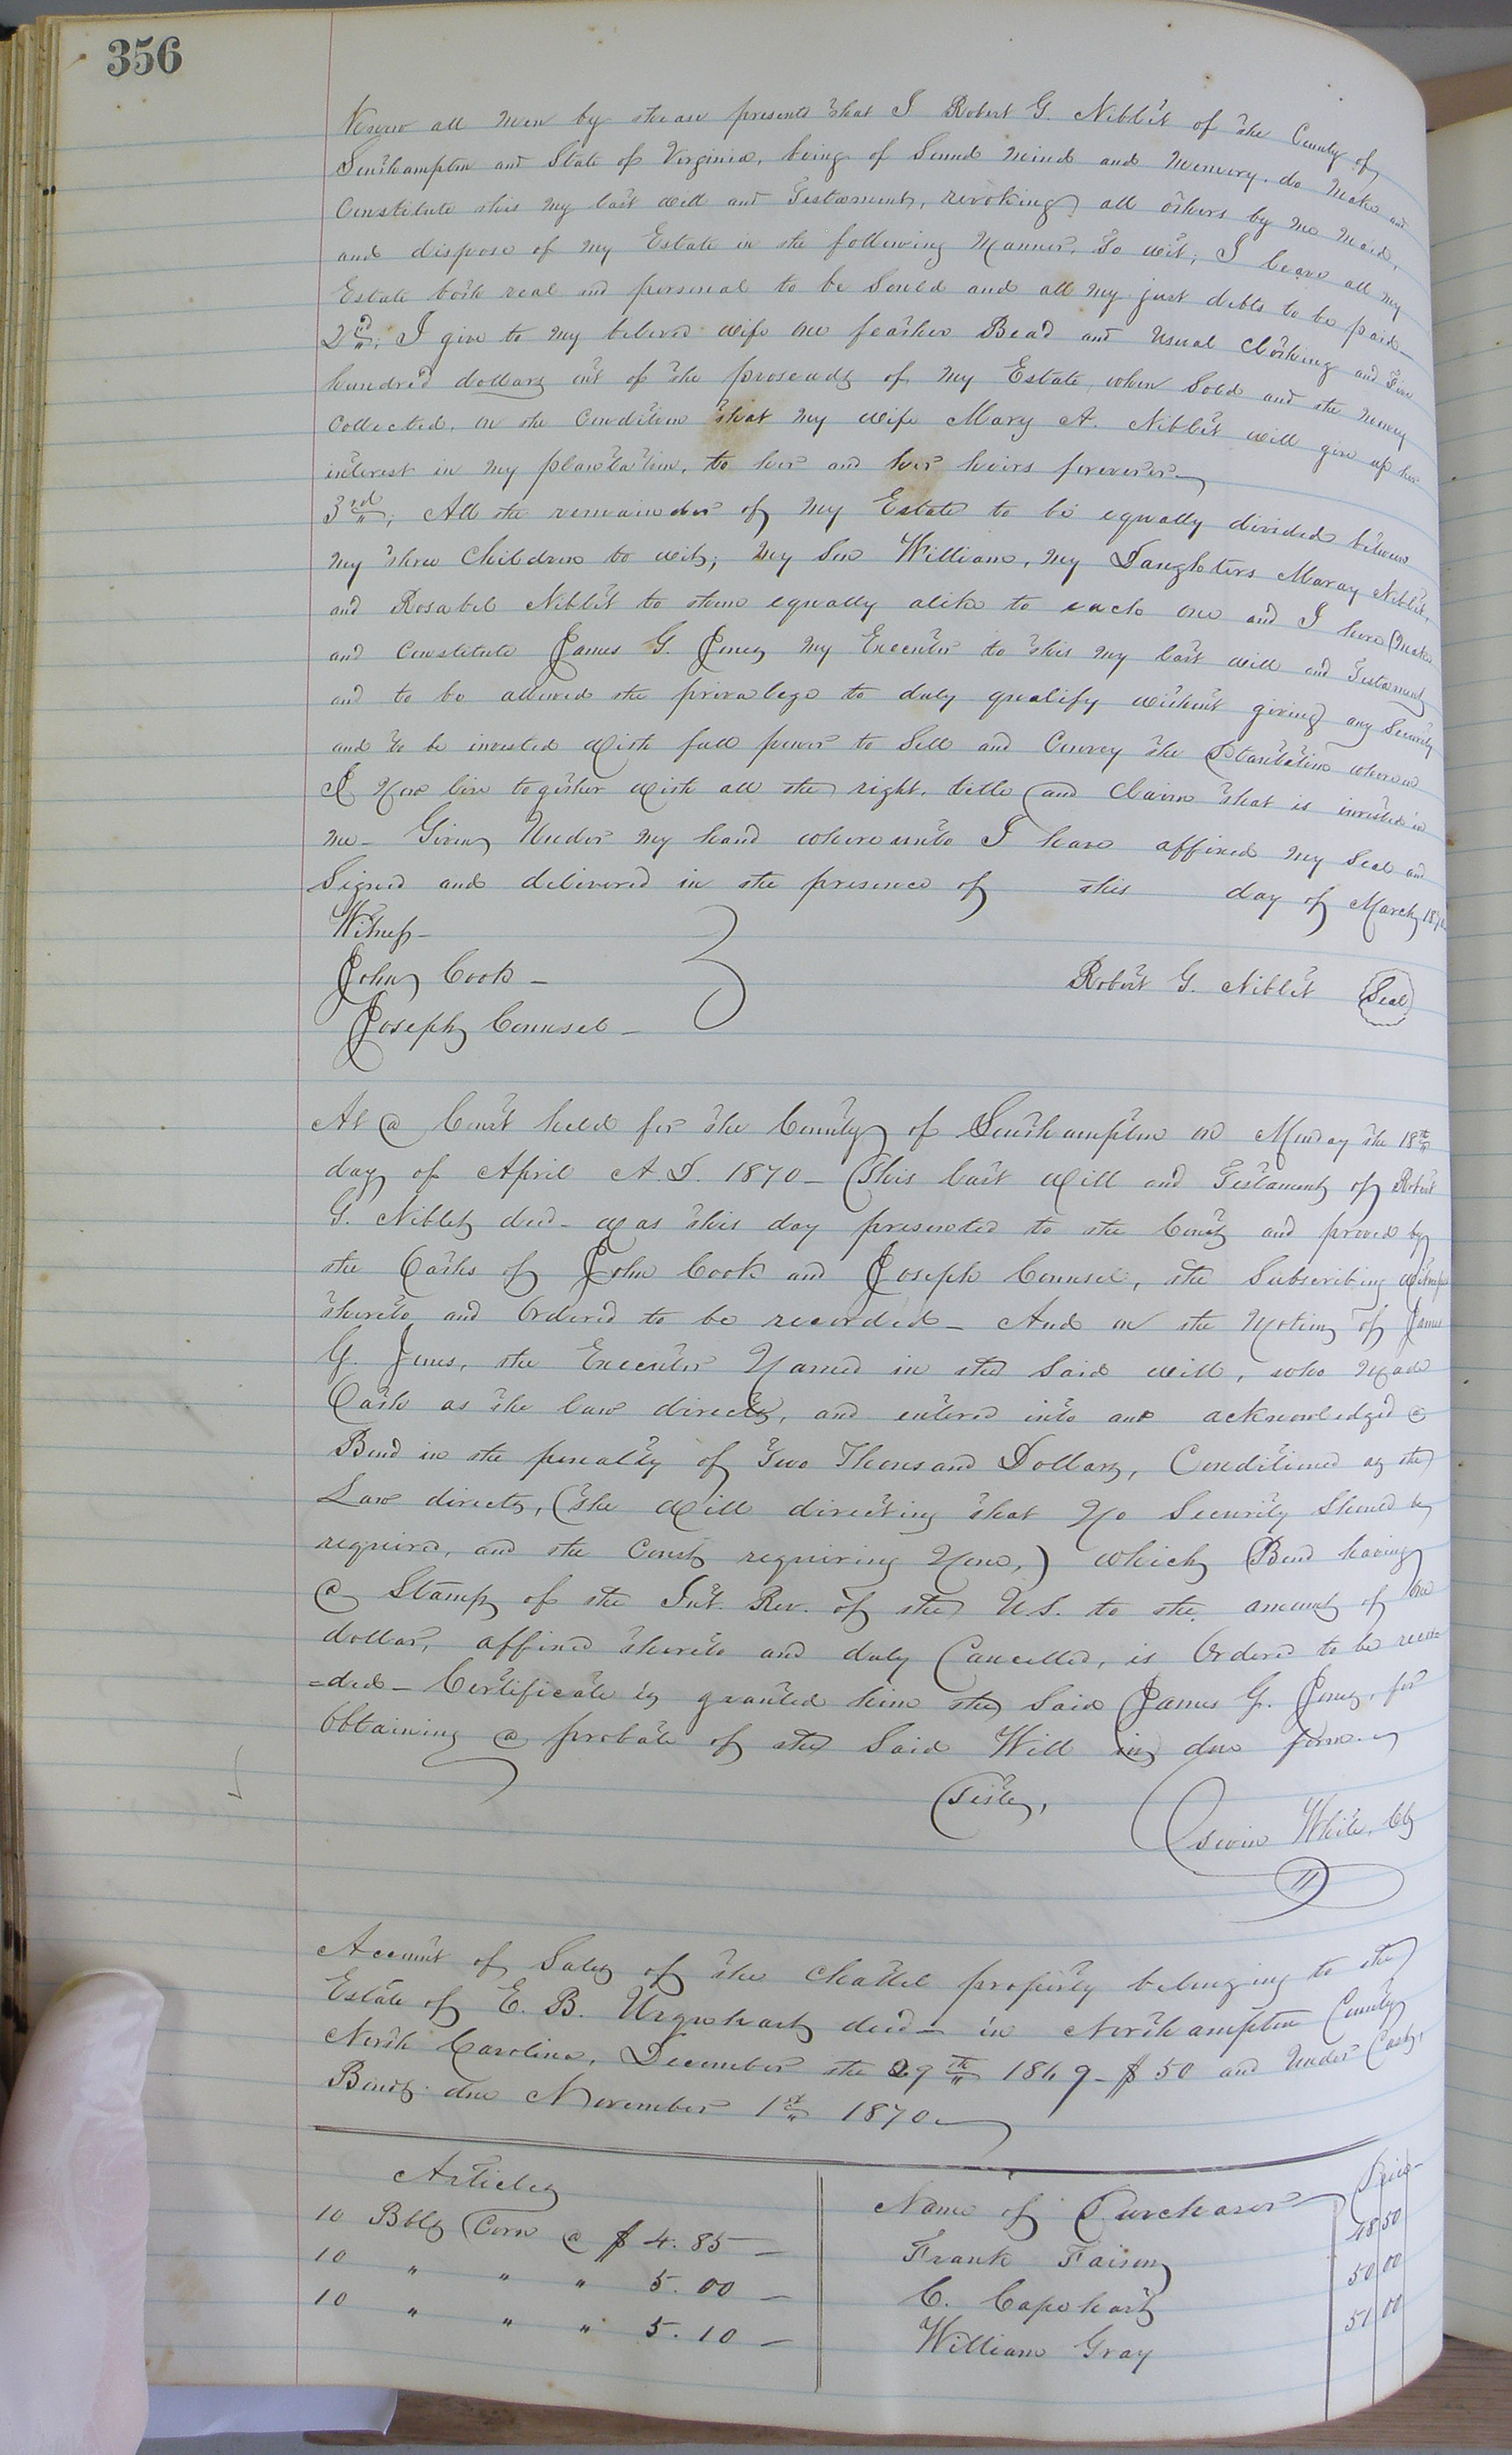 356
Know all men by thease presents that I Robert G. Niblit of the County of
Southampton and State of Virginia, being of Sound mind and memory. do make and
Constitute this my last will and Testament, revoking all others by me maid,
and dispose of my Estate in the following manner, to wit; I leave all my
Estate both real and personal to be Sould and all my just debts to be paid-
2nd; I give to my beloved wife one feather Bead and usual Clothing and Five
hundred dollars out of the proseads of my Estate, when Sold and the money
Collected, on the Condition that my wife Mary A. Niblit will give up her
interest in my plantation, to her and her heirs forever
3rd; All the remainder of my Estate to be equally divided between
my three Children to wit; my Son William, my Daughters Maray Niblit,
and Rosabel Niblit to them equally alike to each one and I here Make
and Constitute James G. Jones my Executor to this my last will and Testament
and to be allowed the privalege to duly qualify without giving any Security
and to be invested with full power to Sell and Convey the Plantation whereon
I Now live together with all the right, title and Claim that is invested in
me- Given Under my hand whereunto I have affixed my Seal and
Signed and delivered in the presence of this day of March 1870
Witness-
John Cook-
Joseph Counsel-
Robert G. Niblit Seal
At a Court held for the County of Southampton on Monday the 18th
day of April A.D. 1870- This last Will and Testament of Robert
G. Niblet decd- was this day presented to the Court and proved by
the Oaths of John Cook and Joseph Counsel, the Subscribing Witnesses
thereto and Ordered to be recorded- And on the Motion of James
G. Jones, the Executor Named in the Said will, who Made
Oath as the law directs, and entered into and acknowledged a
Bond in the penalty of Two Thousand Dollars, Conditioned as the
Law directs, (the Will directing that No Security Should be
required, and the Court requiring None,) which Bond having
a Stamp of the Int. Rev. of the U.S. to the amount of One
dollar, affixed thereto and duly Cancelled, is Ordered to be recor=
=ded- Certificate is granted him the Said James G. Jones, for
Obtaining a probate of the Said Will in due form.
Teste,
White, Clk
Account of Sales of the Chattel property belonging to the
Estate of E. B. Urquhart decd- in Northampton County
North Carolina, December the 29th 1869- $50 and Under Cash,
Bonds due November 1st 1870
Articles Name of Purchaser Price-
10 Bbls Corn @ $4.85- Frank Faison 48 50
10 " " " 5.00- C. Capehart 50 00
10 " " " 5.10- William Gray 51 00